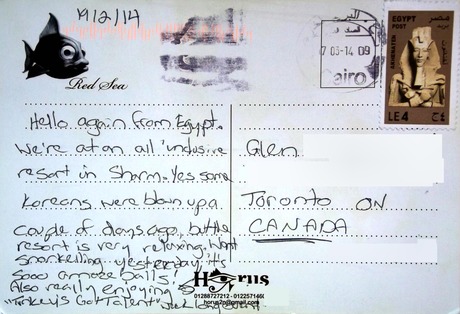 19/2/14
Red Sea
Hello again from Egypt.
We're at an all inclusive
resort in Sharm. Yes some
Koreans were blown up a
couple of days ago, but the
resort is very relaxing. Went
snorkelling yesterday, it's
sooo amaze balls!
Also really enjoying
"Turkey's Got Talent"
Horus
horus2n@gmail.com
7 03-14 09
airo
EGYPT مصر
POST
AKHENATEN
LE4 ج٤
Glen
Toronto ON
CANADA